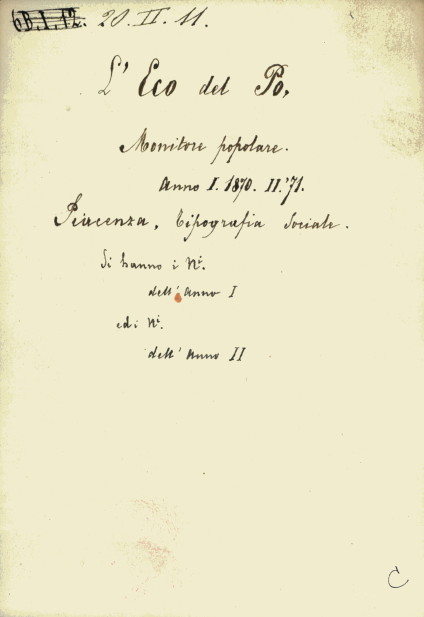 6D.I.12. 20.II.11.
L' Eco del Po,
Monitore popolare.
Anno I. 1870. II.'71.
Piacenza, Tipografia Sociale.
Si hanno i Nⁱ.
dell' Anno I
ed i Nⁱ.
dell' Anno II
C